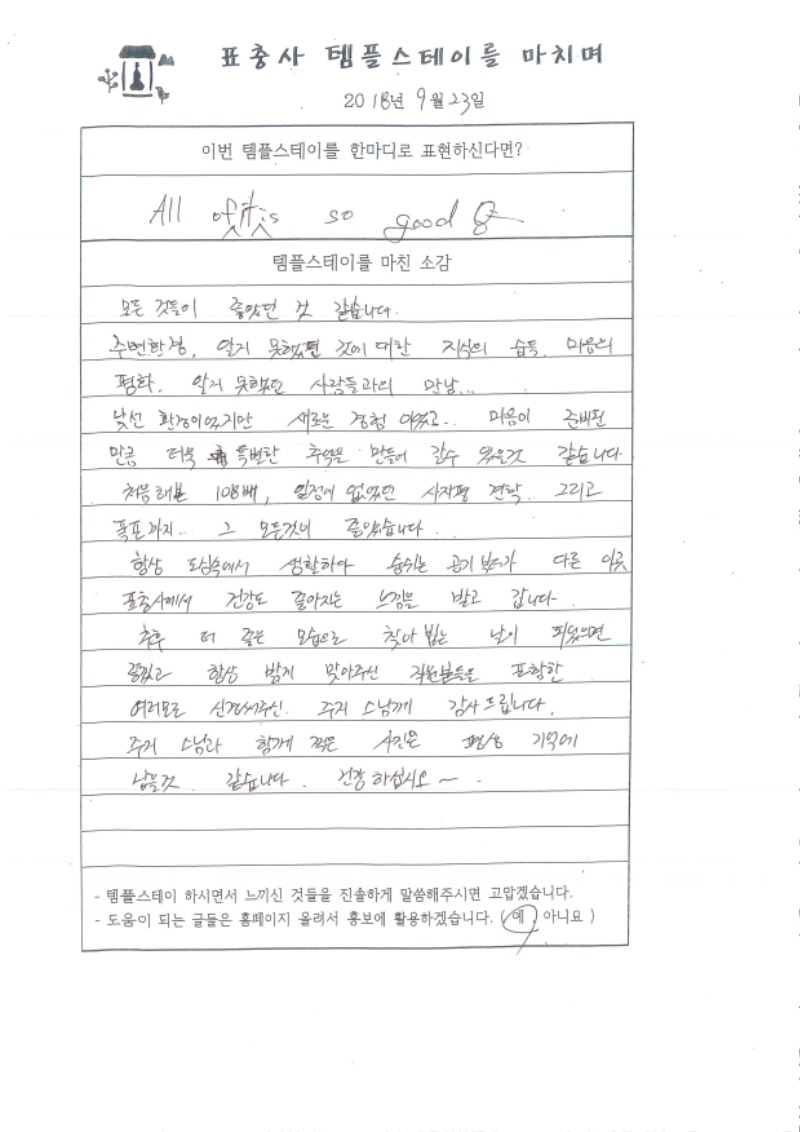 표충사 템플스테이를 마치며
2018년 9월 23일
이번 템플스테이를 한마디로 표현하신다면?
All of it is so good
템플스테이를 마친 소감
모든 것들이 좋았던 것 같습니다.
주변환경, 알지 못했던 것에 대한 지식의 습득, 마음의
평화, 알지 못했던 사람들과의 만남...
낯선 환경이었지만 새로운 경험이었고.. 마음이 준비된
만큼 더욱 특별한 추억을 만들어 갈수 있을것 같습니다
처음해본 108배, 일정에 없었던 사자평 견학.. 그리고
폭포까지... 그 모든것이 좋았습니다.
항상 도심속에서 생활하다 숨쉬는 공기부터가 다른 이곳
표충사에서 건강도 좋아지는 느낌을 받고 갑니다.
추후 더 좋은 모습으로 찾아 뵙는 날이 되었으면
좋겠고 항상 밝게 맞아주신 직원분들을 포함한
여러모로 신경써주신 주지 스님께 감사드립니다.
주지 스님과 함께 찍은 사진은 평생 기억에
남을것 같습니다. 건강하십시오~.
- 템플스테이 하시면서 느끼신 것들을 진솔하게 말씀해주시면 고맙겠습니다.
- 도움이 되는 글들은 홈페이지 올려서 홍보에 활용하겠습니다. ( 예, 아니요 )